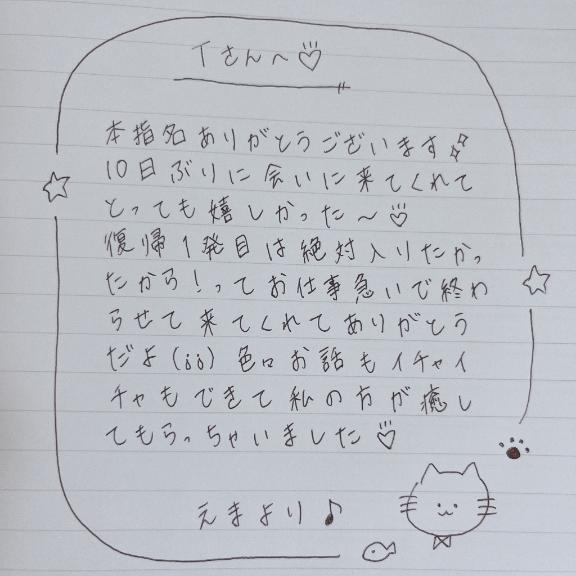 Tさん〜♡
本指名ありがとうございます
10日ぶりに会いに来てくれて
とっても嬉しかった〜♡
復帰1発目は絶対入りたかっ
たから！ってお仕事急いで終わ
らせて来てくれてありがとう
だよ(;;)色々お話もイチャイ
チャもできて私の方が癒し
てもらっちゃいました♡
えまより♪